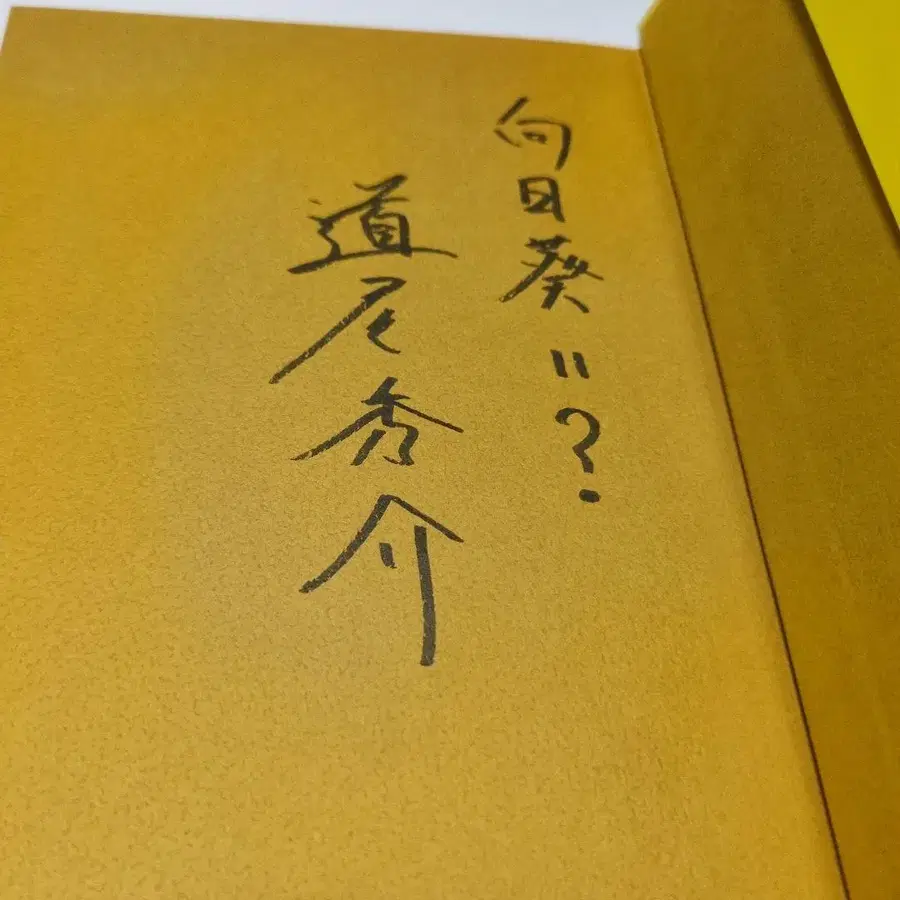 向日葵=?
道尾秀介